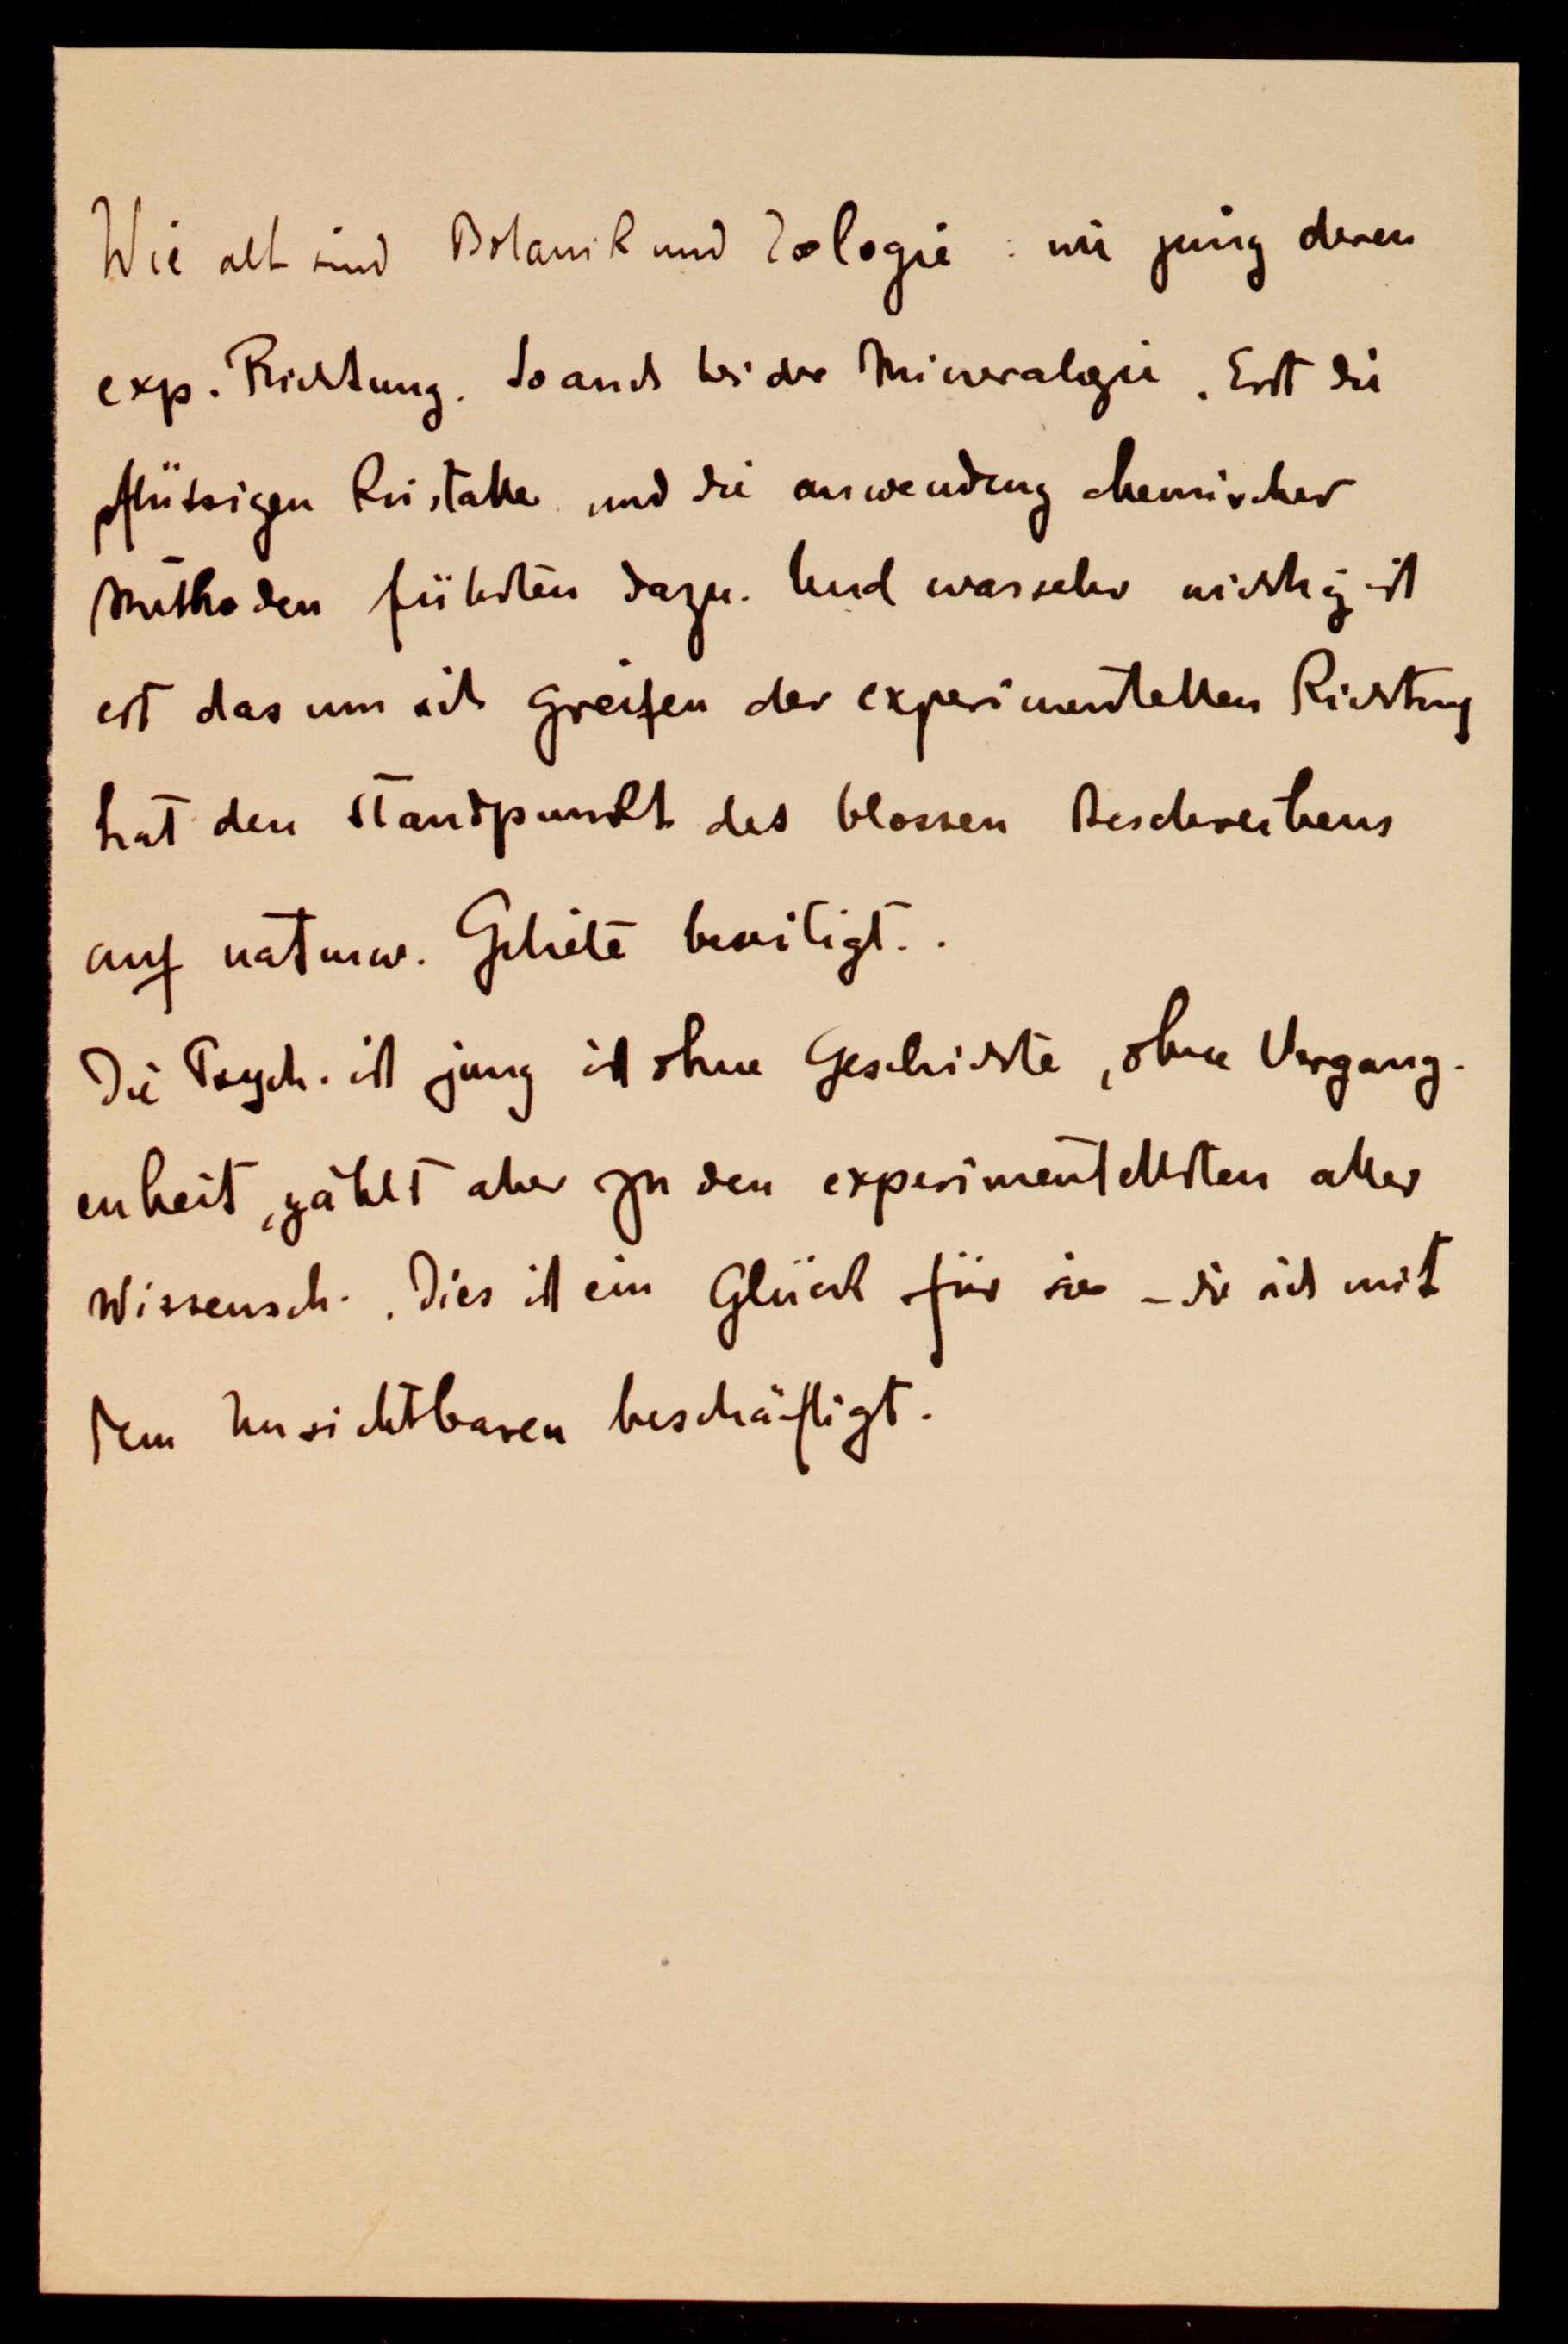 Wie alt sind Botanik und Zoologie : wie jung deren
exp. Richtung. So auch bei der Mineralogie . Erst die
flüssigen Kristalle und die anwendung chemischer
Methoden führten dazu. Und was sehr wichtig ist
erst das um sich greifen der experimentellen Richtung
hat den Standpunkt des blossen Beschreibens
auf naturw. Gebiete beseitigt. .
Die Psych. ist jung ist ohne Geschichte, ohne Vergang-
enheit, zählt aber zu den experimentellsten aller
Wissensch. . Dies ist ein Glück für sie – die sich mit
dem Unsichtbaren beschäftigt.